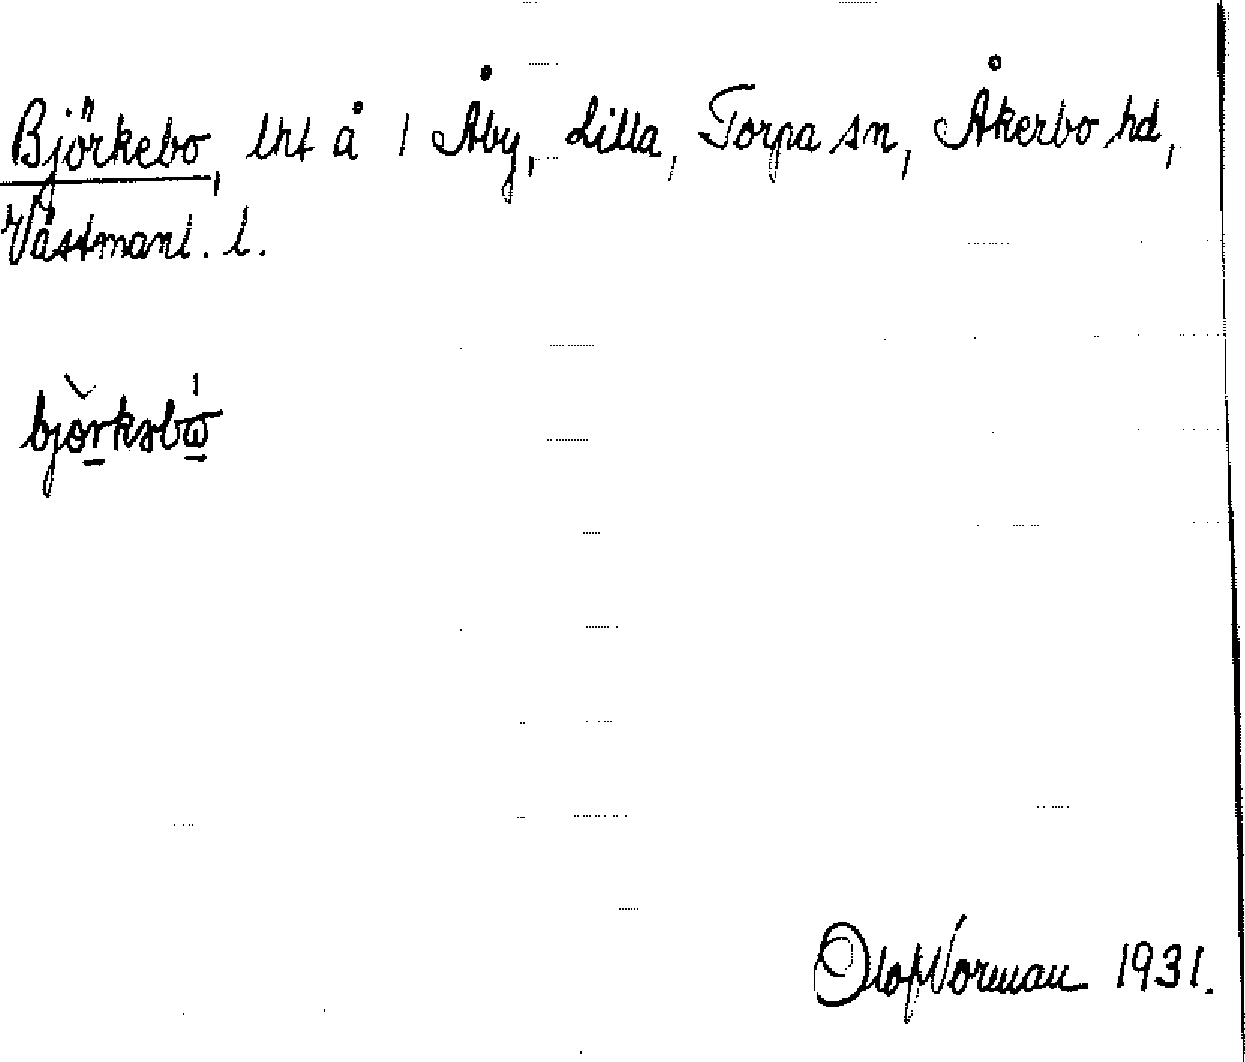 Björkebo, lht å 1 Åby, Lilla, Torpa sn, Åkerbo hd,
Västmanl. l.
Olof Norman 1931.